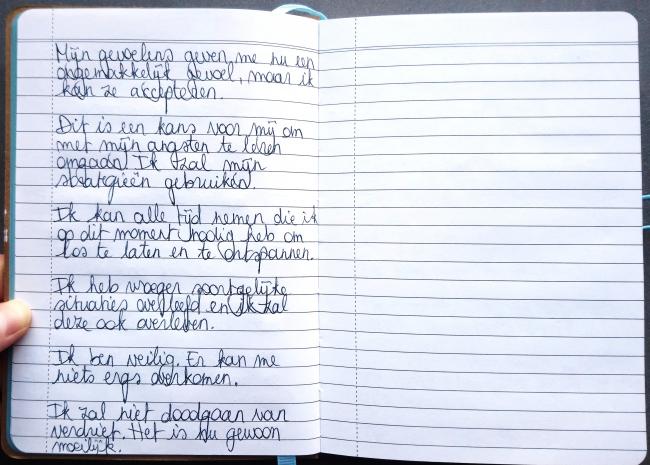 Mijn gevoelens geven me nu een
ongemakkelijk gevoel, maar ik
kan ze accepteren.
Dit is een kans voor mij om
met mijn angsten te leren
omgaan. Ik zal mijn
strategieën gebruiken.
Ik kan alle tijd nemen die ik
op dit moment nodig heb om
los te laten en te ontspannen.
Ik heb vroeger soortgelijke
situaties overleefd en ik zal
deze ook overleven.
Ik ben veilig. Er kan me
niets ergs overkomen.
Ik zal niet doodgaan van
verdriet. Het is nu gewoon
moeilijk.